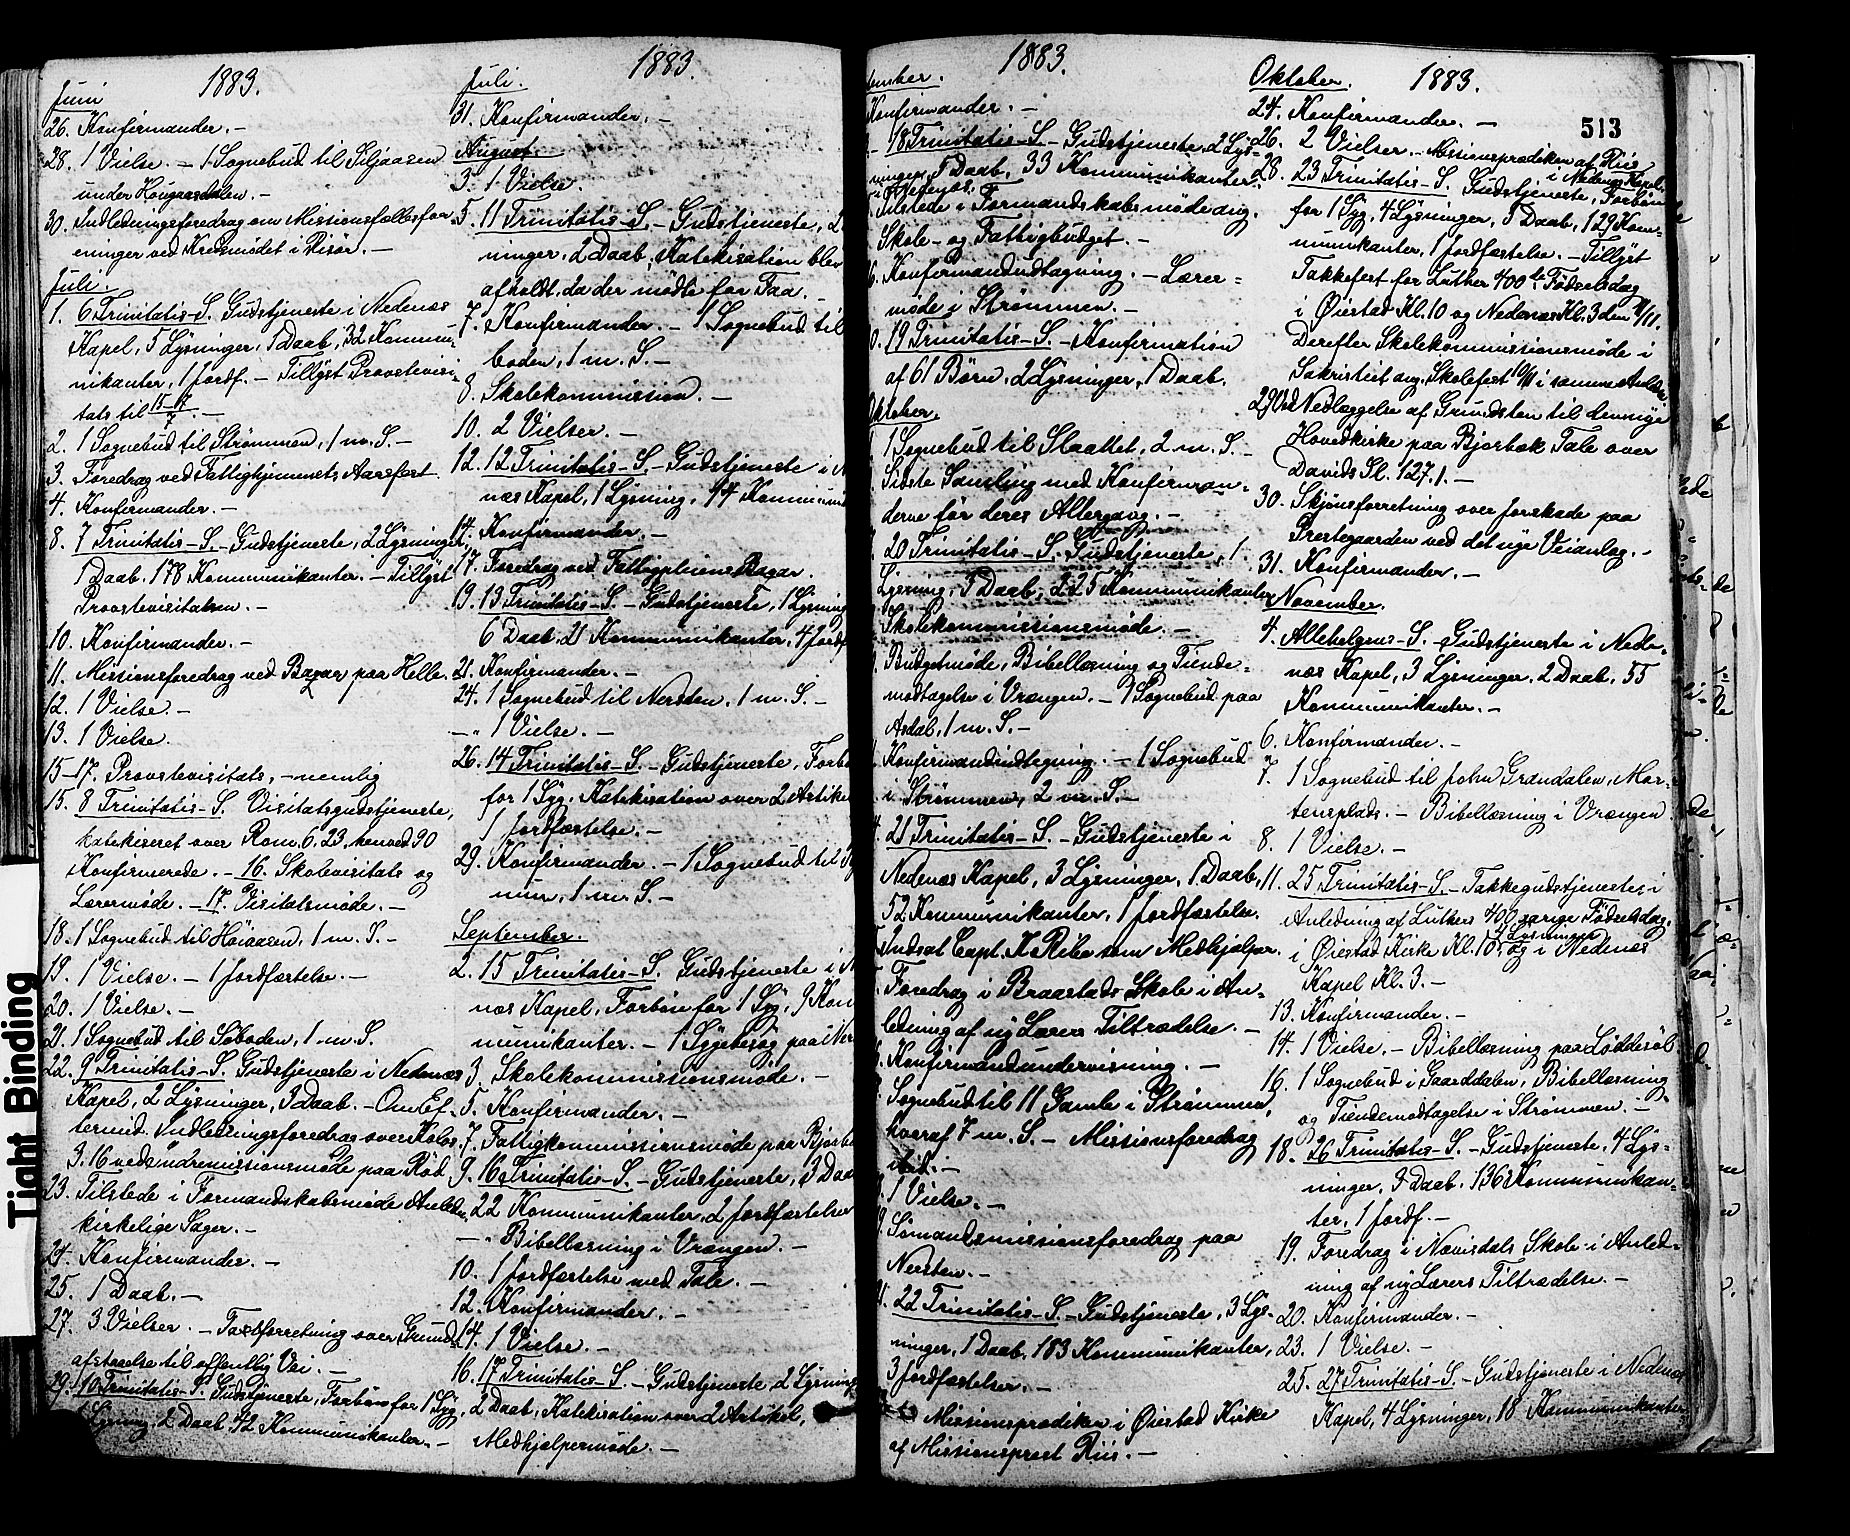 1883.
Juni
26. Konfirmander. –
28. 1 Vielse. – 1 Sognebud til Siljaasen
under Hougaasdalen. –
30. Indledningsforedrag om Missionsfællesfor-
eninger ved Kredsmødet i Risør. –
Juli.
1. 6 Trinitatis-S. Gudstjeneste i Nedenæs
Kapel, 5 Lysninger, 1 Daab, 32 Kommu-
nikanter, 1 Jordf. – Tillyst Provstevisi-
tats til 15-17/7. –
2. 1 Sognebud til Strømmen, 1 m. S. –
3. Foredrag ved Fattighjemmets Aarsfest.
4. Konfirmander. –
8. 7 Trinitatis-S. Gudstjeneste, 2 Lysninger,
1 Daab, 178 Kommunikanter. – Tillyst
Provstevisitatsen. –
10. Konfirmander. –
11. Missionsforedrag ved Bazar paa Helle. –
12. 1 Vielse. –
13. 1 Vielse.
15–17. Provstevisitats, – nemlig
15. 8 Trinitatis-S. Visitatsgudstjeneste,
katekiseret over Rom. 6, 23, henved 90
Konfirmerede. – 16. Skolevisitats og
Lærermøde. – 17. Visitatsmøde. –
18. 1 Sognebud til Høiaasen, 1 m. S. –
19. 1 Vielse. – 1 Jordfæstelse. –
20. 1 Vielse. –
21. 1 Sognebud til Søboden, 1 m. S.
22. 9 Trinitatis-S. Gudstjeneste i Nedenæs
Kapel, 2 Lysninger, 3 Daab. – Om Ef-
termid. Indledningsforedrag over Kolos.
3. 16 ved Indremissionsmøde paa Rød.
23. Tilstede i Formandskabsmøde
kirkelige Sager. –
24. Konfirmander. –
25. 1 Daab. –
27. 3 Vielser. – Taxtforretning over Grund-
afstaaelse til offentlig Vei. –
29. 10 Trinitatis-S. Gudstjeneste, Forbøn for 1 Syg,
1 Lysning, 2 Daab, 42 Kommunikanter. –
1883.
Juli.
31. Konfirmander. –
August.
3. 1 Vielse.
5. 11 Trinitatis-S. – Gudstjeneste, 2
ninger, 2 Daab, Katekisation blev
afholdt, da der mødte for Faa. –
7. Konfirmander. – 1 Sognebud til
boden, 1 m. S. –
8. Skolekommission. –
10. 2 Vielser. –
12. 12 Trinitatis-S. – Gudstjeneste i N
næs Kapel, 1 Lysning, 44 Kommuni
14. Konfirmander. –
17. Foredrag ved Fattigpleiens Bazar.
19. 13 Trinitatis-S. – Gudstjeneste, 1 Lysning
6 Daab, 21 Kommunikanter, 4 Jordf
21. Konfirmander. –
24. 1 Sognebud til Nersten, 1 m. S. –
–„ 1 Vielse. –
26. 14 Trinitatis-S. – Gudstjeneste, Forbø
for 1 Syg, Katekisation over 2 Artike
1 Jordfæstelse. –
29. Konfirmander. – 1 Sognebud til
num, 1 m. S. –
September.
2. 15 Trinitatis-S. Gudstjeneste i N
næs Kapel, Forbøn for 1 Syg, 9 Kom
munikanter. – 1 Sygebesøg paa Ner
3. Skolekommissionsmøde. –
5. Konfirmander. –
7. Fattigkommissionsmøde paa Bjorbæ
9. 16 Trinitatis-S. – Gudstjeneste, 3 Daab
22 Kommunikanter, 2 Jordfæstelser
–„ Bibellæsning i Vrængen. –
10. 1 Jordfæstelse med Tale. –
12. Konfirmander. –
14. 1 Vielse. –
16. 17 Trinitatis-S. – Gudstjeneste, 2 Lysning
2 Daab, Katekisation over 2 Artikel,
Medhjælpermøde. –
1883.
tember.
Konfirmander. –
18 Trinitatis-S. – Gudstjeneste, 2 Lys-
ninger, 5 Daab, 33 Kommunikanter.
i Nedenæs.
Tilstede i Formandskabsmøde ang.
Skole- og Fattigbudget. –
6. Konfirmandudtagning. – Lærer-
møde i Strømmen. –
0. 19 Trinitatis-S. – Konfirmation
af 61 Børn, 2 Lysninger, 1 Daab.
Oktober.
1 Sognebud til Slaattet, 2 m. S. –
Sidste Samling med Konfirman-
derne før deres Altergang. –
20 Trinitatis-S. Gudstjeneste, 1
Lysning, 5 Daab, 225 Kommunikanter
Skolekommissionsmøde. –
Budgetmøde, Bibellæsning og Tiende-
modtagelse i Vrængen. – 1 Sognebud paa
Asdal, 1 m. S. –
Konfirmandindtegning. – 1 Sognebud
i Strømmen, 2 m. S. –
4. 21 Trinitatis-S. – Gudstjeneste i
Nedenæs Kapel, 3 Lysninger, 1 Daab,
52 Kommunikanter, 1 Jordfæstelse.
Indsat Capt. K. Ribe som Medhjælper.
Foredrag i Braastads Skole i An-
ledning af ny Lærers Tiltrædelse. –
Konfirmandundervisning. –
Sognebud til 11 Gamle i Strømmen,
hvoraf 7 m. S. – Missionsforedrag
ibid. –
1 Vielse. –
Sømandsmissionsforedrag paa
Nersten. –
22 Trinitatis-S. – Gudstjeneste, 3 Lys-
ninger, 1 Daab, 183 Kommunikanter,
3 Jordfæstelser. –
Missionsprædiken i Øiestad Kirke
af Missionsprest Riis. –
Oktober. 1883.
513
24. Konfirmander. –
26. 2 Vielser. – Missionsprædiken af Riis
i Nedenæs Kapel.
28. 23 Trinitatis-S. Gudstjeneste, Forbøn
for 1 Syg, 4 Lysninger, 5 Daab, 129 Kom-
munikanter, 1 Jordfæstelse. – Tillyst
Takkefest for Luther 400de Fødselsdag
i Øiestad Kl. 10 og Nedenæs Kl. 3 den 11/11.
Derefter Skolekommissionsmøde i
Sakristiet ang. Skolefest 10/11 i samme Anled.
29 Ved Nedlæggelse af Grundsten til den nye
Hovedkirke paa Bjorbæk Tale over
Davids Sl. 127, 1. –
30. Skjønsforretning over Jordskade paa
Prestegaarden ved det nye Veianlæg. –
31. Konfirmander. –
November.
4. Allehelgens-S. – Gudstjeneste i Nede-
næs Kapel, 3 Lysninger, 2 Daab, 55
Kommunikanter. –
6. Konfirmander. –
7. 1 Sognebud til John Grøndalen, Mor-
tensplads. – Bibellæsning i Vrængen.
8. 1 Vielse. –
11. 25 Trinitatis-S. – Takkegudstjeneste i
Anledning af Luthers 400 aarige Fødselsdag.
3 Lysninger
i Øiestad Kirke Kl. 10, og i Nedenæs
Kapel Kl. 3. –
13. Konfirmander. –
14. 1 Vielse. – Bibellæsning paa Løddesøl
16. 1 Sognebud i Gaarddalen, Bibellæsning
og Tiendemodtagelse i Strømmen. –
18. 26 Trinitatis-S. – Gudstjeneste, 4 Lys-
ninger, 3 Daab, 136 Kommunikan-
ter, 1 Jordf. –
19. Foredrag i Nævisdals Skole i Anled-
ning af ny Lærers Tiltrædelse. –
20. Konfirmander. –
23. 1 Vielse. –
25. 27 Trinitatis-S. – Gudstjeneste i Nedenæs
Kapel, 4 Lysninger, 18 Kommunikanter
Tight Binding